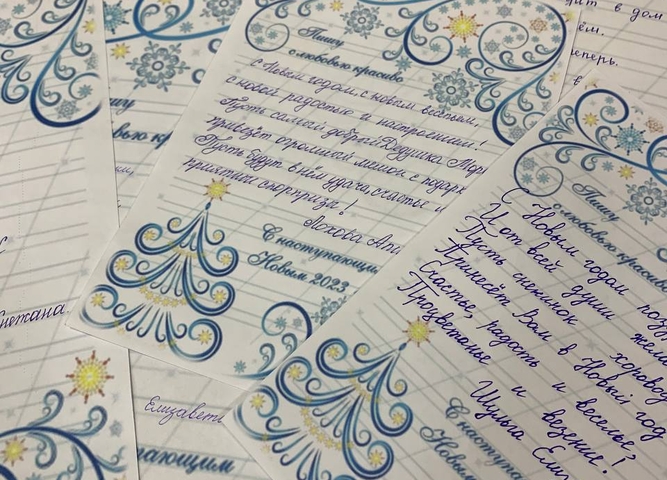 Пишу
с любовью красиво
С Новым годом, с новым весельем,
с новой радостью и настроением!
Пусть самый добрый Дедушка Мор
привезёт огромный мешок с подарк
Пусть будут в нём удача, счастье и
приятный сюрпризы!
Лохова Ана
С наступающим
Новым 2023
Пишу
с любовью красиво
С Новым годом позд
И от всей души жела
Пусть снежинок хоровод
Принесёт Вам в Новый год
Счастье, радость и веселье,
Процветанье и везение!
Шульга Ели
С наступа
Новым
Пишу
ью красиво
нежана.
Елизавета
пающим
дит в дом
ём.
еперь.
в